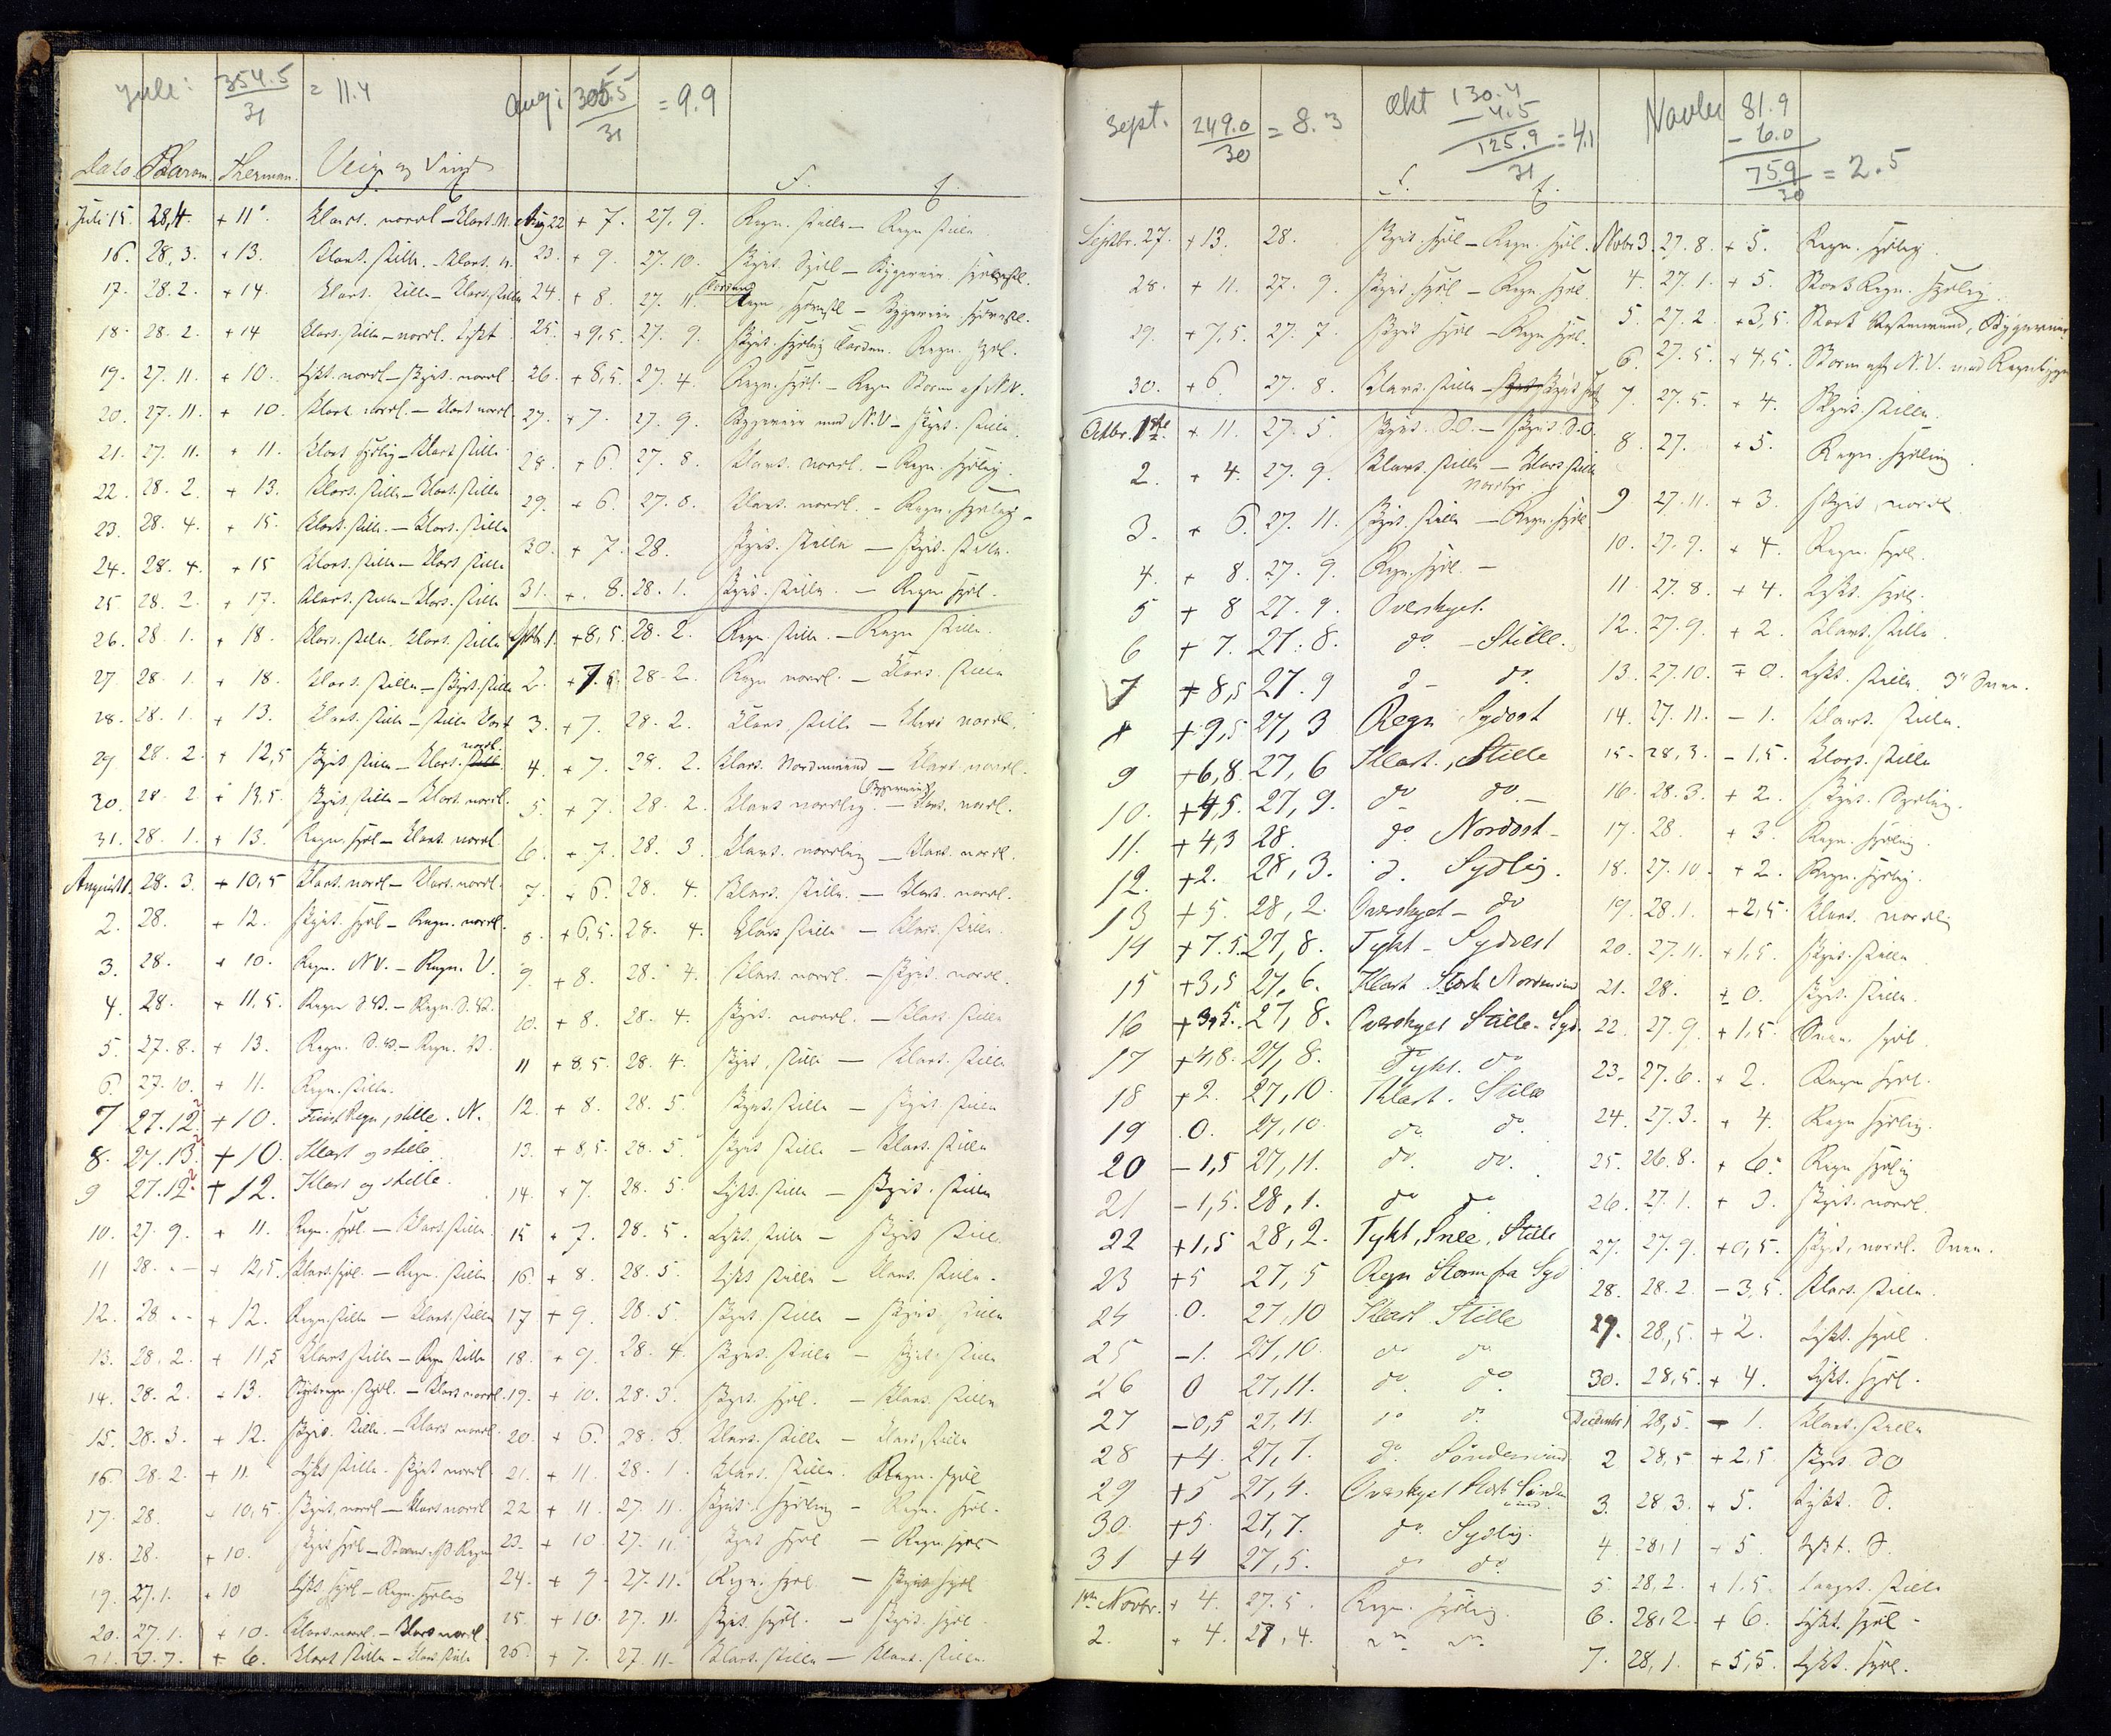 Juli: 354.5 / 31 = 11.4
Aug: 305.5 / 31 = 9.9
Dato Barom. Thermom. Veir og Vind
F. E.
Juli 15. 28,4. + 11°. Klart. nordl – Klart. N.
16. 28,3. + 13. Klart. Stille. – Klart. N.
17. 28.2. + 14. Klart. Stille – Klart. Stille
18. 28.2. + 14 Klart. Stille – nordl. Tykt
19. 27.11. + 10. Tykt. nordl – Skyet. nordl
20. 27.11. + 10. Klart nordl. – Klart nordl
21. 27.11. + 11. Klart Sydlig – Klart Stille
22. 28.2. + 13. Klart. Stille – Klart. Stille
23. 28.4. + 15. Klart. Stille. – Klart. Stille
24. 28.4. + 15 Klart. Stille – Klart Stille
25. 28.2. + 17. Klart. Stille – Klart. Stille
26. 28.1. + 18. Klart. Stille. Klart. Stille
27. 28.1. + 18. Klart. Stille – Skyet. Stille
28. 28.1. + 13. Klart. Stille – Stille Klart
29 28.2. + 12,5 Skyet Stille – Klart. nordl.
30. 28.2 + 13,5. Skyet. Stille – Klart. nordl.
31. 28.1. + 13. Regn. Sydl – Klart. nordl
August 1. 28.3. + 10,5 Klart. nordl – Klart. nordl.
2. 28. + 12. Skyet. Sydl – Regn. nordl.
3. 28. + 10. Regn. NV. – Regn. V.
4. 28. + 11,5. Regn S.V. – Regn. S.V.
5. 27.8. + 13. Regn. S.V. – Regn. V.
6 27.10. + 11. Regn. Stille.
7 27.12? + 10. Fiin Regn, stille. N.
8. 27.13? + 10. Klart og stille.
9 27.12? + 12. Klart og stille.
10. 27.9. + 11. Regn. Sydl. – Klart. Stille
11 28. – + 12,5. Klart. Sydl. – Regn. Stille
12. 28 – + 12. Regn. Stille – Klart. Stille
13. 28.2. + 11,5 Klart Stille – Regn Stille
14. 28.2. + 13. Sydl. – Klart nordl.
15. 28.3. + 12. Skyet. Stille. – Klart nordl.
16 28.2. + 11. Tykt Stille. Skyet nordl
17. 28. + 10,5 Skyet, nordl – Klart nordl
18. 28. + 10. Skyet Sydl – Storm af Regn
19. 27.1. + 10 Tykt. Sydl – Regn. Sydlig
20. 27.1. + 10. Klart nordl. – Klart nordl.
21. 27.7. + 6. Klart Stille – Klart Stille
Aug 22 + 7. 27.9. Regn. Stille – Regn Stille
23. + 9. 27.10. Skyet. Sydl – Bygeveir Sydvestl.
24. + 8. 27.11. Torden Regn Sydvestl – Bygeveir Sydvestl.
25. + 9,5. 27.9. Skyet. Sydlig Torden. Regn. Sydl.
26. + 8,5. 27.4. Regn. Sydl. – Regn Storm af N.V.
27. + 7. 27.9. Bygeveir med N.V – Skyet. Stille
28. + 6. 27.8. Klart. nordl. – Regn. Sydlig.
29. + 6 27.8. Klart. nordl. – Regn. Sydlig –
30. + 7. 28. Skyet. Stille – Skyet. Stille.
31. + 8. 28.1. Skyet. Stille. – Regn Sydl.
Septbr 1. + 8,5. 28.2. Regn. Stille. – Regn Stille.
2. + 7.5. 28.2. Regn nordl. – Klart. Stille
3. + 7. 28.2. Klart Stille – Klart nordl.
4. + 7. 28.2. Klart. Nordenvind – Klart nordl.
5. + 7. 28.2. Klart nordlig. Bygeveir – Klart. nordl.
6. + 7. 28.3. Klart. nordlig – Klart. nordl.
7. + 6. 28.4. Klart. Stille. – Klart. nordl.
8. + 6,5. 28.4. Klart Stille – Klart. Stille.
9. + 8. 28.4. Klart. nordl. – Skyet. nordl.
10. + 8. 28.4. Skyet. nordl. – Klart. Stille
11 + 8,5. 28.4. Skyet. Stille – Klart. Stille
12. + 8. 28.5. Skyet. Stille – Skyet Stille
13. + 8,5. 28.5. Skyet Stille – Klart. Stille
14. + 7. 28.5. Tykt. Stille – Skyet. Stille
15 + 7. 28.5. Tykt. Stille – Skyet Stille
16 + 8. 28.5. Tykt Stille – Klart. Stille.
17 + 9. 28.5 Skyet. Stille – Skyet. Stille
18. + 9. 28.4. Skyet. Stille – Skyet Stille
19. + 10. 28.3. Skyet. Sydl. – Klart. Stille
20. + 6. 28.3. Klart. Stille – Klart, Stille
21. + 11. 28.1. Klart. Stille. Regn. Sydl
22 + 11. 27.11. Skyet. Sydlig – Regn. Sydl.
23. + 10 27.11. Skyet Sydl – Regn. Sydl
24. + 9 27.11. Regn. Sydl – Skyet Sydl
25. + 10. 27.11. Skyet. Sydl. – Skyet. Sydl
26 + 7. 27.11. Klart. Stille – Klart. Stille.
Sept. 249.0 / 30 = 8.3
Okt 130.4 – 4.5 125.9 / 31 = 4.1
Novbr 81.9 – 6.0 75.9 / 30 = 2.5
F. E.
Septbr. 27. + 13. 28. Skyet. Sydl – Regn. Sydl.
28. + 11. 27.9. Skyet. Sydl – Regn. Sydl
29. + 7,5. 27.7. Skyet Sydl – Regn Sydl.
30. + 6 27.8. Klart. Stille – Skyet
Octbr. 1ste. + 11. 27.5. Skyet. S.O. – Skyet S.O.
2. + 4. 27.9. Klart. Stille – Klart Stille
3. + 6. 27.11. Skyet. Stille – Nordlys Regn. Sydl.
4. + 8. 27.9. Regn. Sydl –
5 + 8 27.9. Overskyet.
6 + 7. 27.8. do – Stille.
7 + 8,5 27.9 d – do.
8 + 9,5 27,3 Regn Sydost
9 + 6,8. 27,6 Klart., Stille
10. + 4,5. 27,9. do do. –
11. + 4,3 28. do Nordost –
12. + 2. 28,3. d. Sydlig.
13 + 5. 28,2. Overskyet – do
14 + 7.5. 27,8. Tykt – Sydvest
15 + 3,5 27,6. Klart Stærk Nordenvind
16 + 3,5. 27,8. Overskyet Stille. Syd.
17 + 4,8. 27,8. do Tykt. do
18 + 2. 27,10. Klart. Stille
19 .0. 27,10. do do.
20 – 1,5 27,11. do. do.
21 – 1,5. 28,1. do do
22 + 1,5 28,2. Tykt, Snee, Stille
23 + 5 27,5 Regn Storm fra Syd
24 .0. 27,10 Klart Stille
25 – 1. 27,10. do do
26 0 27,11. do. do.
27 – 0,5 27,11. do d.
28 + 4. 27,7. do. Søndenvind
29 + 5 27,4. Overskyet Stærk Søndenvind.
30. + 5. 27,7. do. Sydlig.
31 + 4 27,5. do do.
1ste Novbr. + 4. 27.5. Regn. Sydlig.
2. + 4. 27,4. do do.
Novbr 3. 27.8. + 5. Regn. Sydlig.
4. 27.1. + 5. Stærk Regn. Sydlig.
5. 27.2. + 3,5. Stærk Vestenvind, Bygeveir
6. 27.5. + 4,5. Storm af N.V. med Regnbyger
7. 27.5. + 4. Skyet. Stille.
8. 27. + 5. Regn. Sydlig.
9 27.11. + 3. Skyet, nordl.
10. 27.9. + 4. Regn. Sydl.
11. 27.8. + 4. Tykt. Sydl.
12. 27.9. + 2. Klart. Stille
13. 27.10. ∓ 0. Tykt. Stille. 3" Snee.
14. 27.11. – 1. Klart. Stille.
15. 28,3. – 1,5. Klart. Stille
16. 28.3. + 2. Skyet. Sydlig.
17. 28. + 3. Regn. Sydlig.
18. 27.10. + 2. Regn. Sydlig.
19. 28.1. + 2,5. Klart. nordlig
20. 27.11. + 1,5. Skyet. Stille.
21. 28. ± 0. Skyet. Stille.
22. 27.9. + 1,5. Snee. Sydl.
23. 27.6. + 2. Regn Sydl.
24. 27.3. + 4. Regn Sydlig.
25. 26.8. + 6. Regn Sydlig
26. 27.1. + 3. Skyet. nordl.
27. 27.9. + 0,5. Skyet, nordl. Snee.
28. 28.2. – 3,5. Klart. Stille.
29. 28,5. + 2. Tykt. Sydl
30. 28,5. + 4. Tykt. Sydl.
Decembr 1 28,5. – 1. Klart. Stille
2 28,5 + 2,5 Skyet. SO
3. 28.3. + 5. Tykt. S.
4. 28,1 + 5 Tykt. S.
5. 28,2. + 1,5. Stille
6. 28,2. + 6. Tykt. Sydl
7. 28,1. + 5,5. Tykt. Sydl.